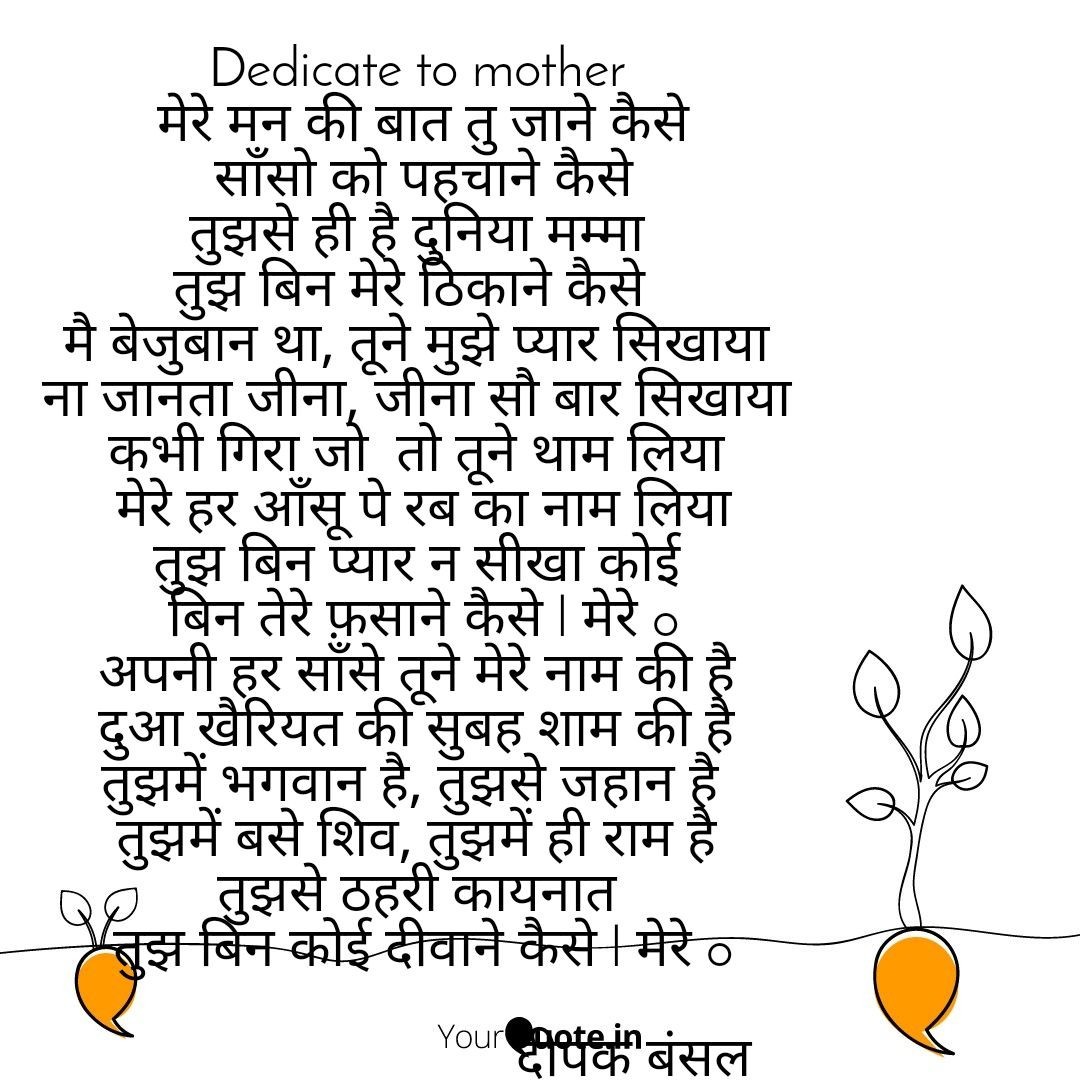 Dedicate to mother
मेरे मन की बात तु जाने कैसे
साँसो को पहचाने कैसे
तुझसे ही है दुनिया मम्मा
तुझ बिन मेरे ठिकाने कैसे
मै बेजुबान था, तूने मुझे प्यार सिखाया
ना जानता जीना, जीना सौ बार सिखाया
कभी गिरा जो  तो तूने थाम लिया
मेरे हर आँसू पे रब का नाम लिया
तुझ बिन प्यार न सीखा कोई
बिन तेरे फ़साने कैसे | मेरे ०
अपनी हर साँसे तूने मेरे नाम की है
दुआ खैरियत की सुबह शाम की है
तुझमें भगवान है, तुझसे जहान है
तुझमें बसे शिव, तुझमें ही राम है
तुझसे ठहरी कायनात
तुझ बिन कोई दीवाने कैसे | मेरे ०
YourQuote.in
दीपक बंसल